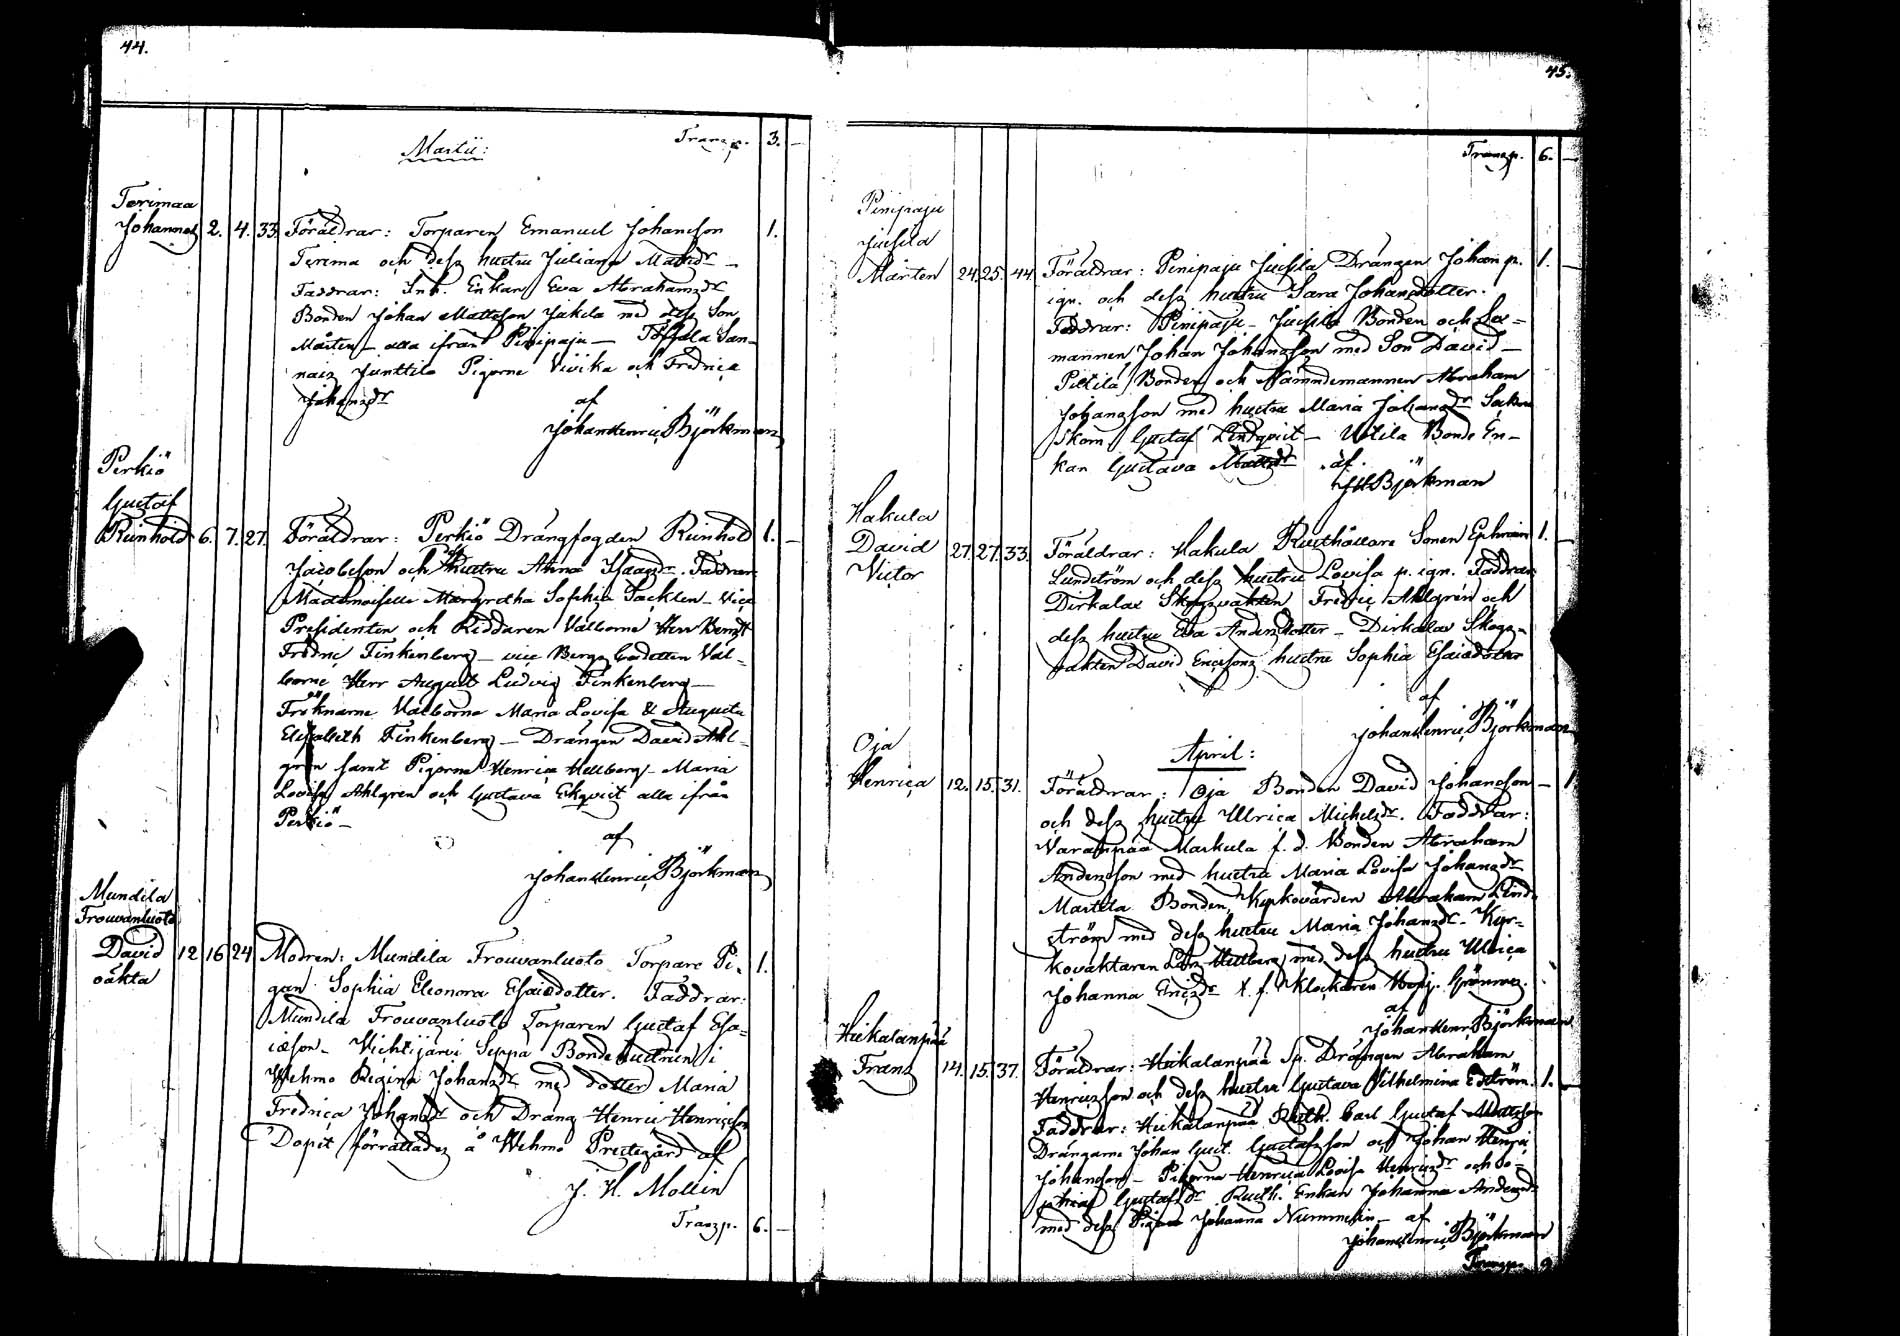 44.
Martii:
Transp. 3. —
Terimaa
Johannes 2. 4. 33. Föräldrar: Torparen Emanuel Johansson 1.
Terima och dess hustru Juliana Matsdr —
Faddrar: Inh. Enkan Eva Abrahamsdr
Bonden Johan Mattsson Jakila med dess Son
Mårten — alla ifrån Pinipaju — San-
nais Junttila Pigorne Vivika och Fredrica
Johansdr
af
Johan Henric Björkman
Perkiö
Gustaf
Reinhold 6. 7. 27. Föräldrar: Perkiö Drängfogden Reinhold 1. —
Jacobsson och hustru Anna Isaacsdr. Faddrar:
Mademoiselle Margretha Sophia Sacklen — Vice
Presidenten och Riddaren Välborne Herr Berndt
Fredric Finkenberg — vice Bergs Cadetten Väl-
borne Herr August Ludvig Finkenberg —
Fröknarne Välborna Maria Lovisa & Augusta
Elisabeth Finkenberg — Drängen David Ahl-
gren samt Pigorna Henrica Hellberg — Maria
Lovisa Ahlgren och Gustava Ekqvist alla ifrån
Perkiö —
af
Johan Henric Björkman
Mundila
Trouvanluoto
David 12 16 24 Modren: Mundila Trouvanluoto Torpare Pi- 1.
oäkta
gan Sophia Eleonora Esaiedotter. Faddrar:
Mundila Trouvanluoto Torparen Gustaf Esa-
iæson — Vichtijärvi Seppä Bondehustrun i
Wehmo Regina Johansdr med dotter Maria
Fredrica Johansdr och Dräng Henric Henricsson
Dopet förrättades å Wehmo Prestegård af
J. H. Mollin
Transp. 6. —
45.
Transp. 6. —
Pinipaju
Jussila
Mårten 24. 25. 44. Föräldrar: Pinipaju Jussila Drängen Johan p. 1. —
ign. och dess hustru Sara Johansdotter.
Faddrar: Pinipaju — Jussila Bonden och Sex=
mannen Johan Johansson med Son David —
Pietilä Bonden och Nämndemannen Abraham
Johansson med hustru Maria Johansdr
Skom. Gustaf Lindqvist — Uotila Bonde En-
kan Gustava Mattsdr af
JH Björkman
Hakula
David 27. 27. 33. Föräldrar: Hakula Rusthållare Sonen Ephraim 1. —
Victor
Lundström och dess hustru Lovisa p. ign. Faddrar:
Dirkalax Skogsvakten Fredric Ahlgren och
dess hustru Eva Andersdotter — Dirkalax Skogs-
vakten David Ericssons hustru Sophia Esaiedotter
af
Johan Henric Björkman
April:
Oja
Henrica 12. 15. 31. Föräldrar: Oja Bonden David Johansson — 1.
och dess hustru Ulrica Michelsdr. Faddrar:
Varanpää Markula f. d. Bonden Abraham
Andersson med hustru Maria Lovisa Johansdr
Martila Bonden, Kyrkovärden Abraham Lind-
ström med dess hustru Maria Johansdr — Kyr-
kovaktaren Hellberg med dess hustru Ulrica
Johanna Ericsdr & f. Klockaren Benj. Grönroos.
af
Johan Henr. Björkman
Heikalanpää
Frans 14. 15. 37. Föräldrar: Heikalanpää Drängen Abraham
Henricsson och dess hustru Gustava Vilhelmina Edström. 1. —
Faddrar: Heikalanpää Rusth. Carl Gustaf Mattsson
Drängarne Johan Gust. Gustafsson och Johan Henric
Johansson — Pigorna Henrica Lovisa Henricsdr och So-
phia Gustafsdr Rusth. Enkan Johanna Andersdr
med dess Pigan Johanna Nummelin — af
Johan Henric Björkman
Transp. 9